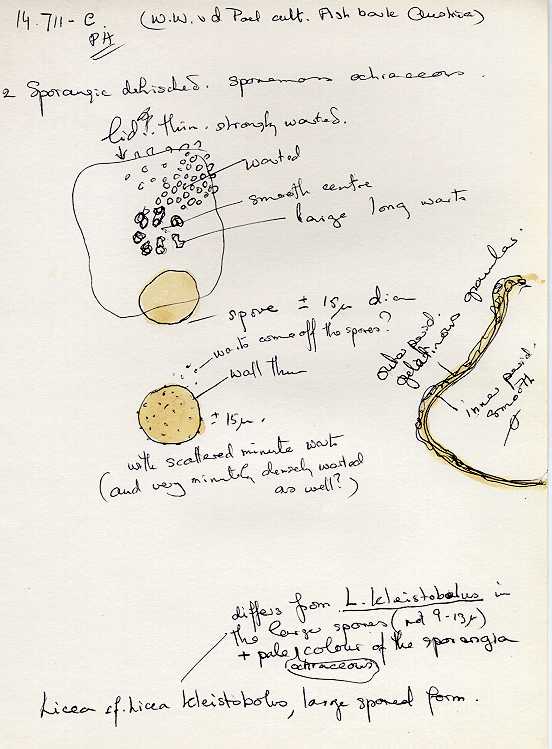 14.711-C. (W.W. v d Poel cult. Ash bark Austria)
PA
2 Sporangia dehisched. sporemass ochraceous.
lid? thin. strongly warted.
warted
smooth centre
large long warts
spore ± 15µ diam
warts come off the spores?
wall thin
± 15µ.
with scattered minute warts
(and very minutely densely warted
as well?)
outer perid.
gelatinous granular.
inner perid.
smooth
differs from L. kleistobolus in
the large spores (not 9-13µ)
+ pale colour of the sporangia
ochraceous
Licea cf. Licea kleistobolus, large spored form.